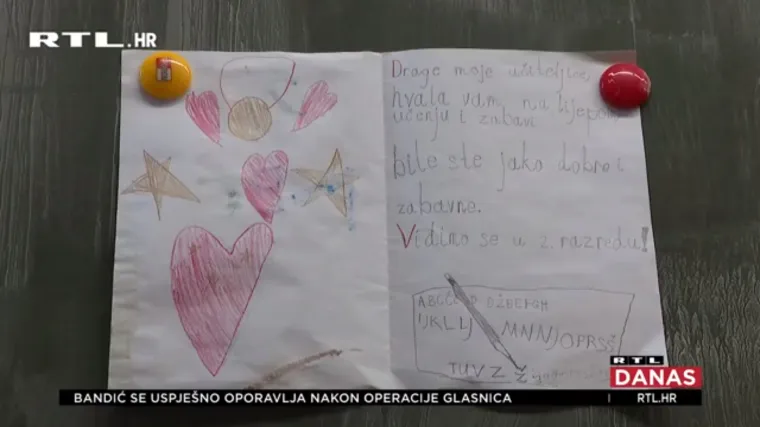 RTL.HR
Drage moje učiteljice
hvala vam na lijepom
učenju i zabavi
bile ste jako dobre i
zabavne.
Vidimo se u 2. razredu!
ABCČĆD DŽĐEFGH
IJKLLJ MNNJOPRSŠ
TUVZ Ž
RTL
DANAS
BANDIĆ SE USPJEŠNO OPORAVLJA NAKON OPERACIJE GLASNICA
RTL.HR